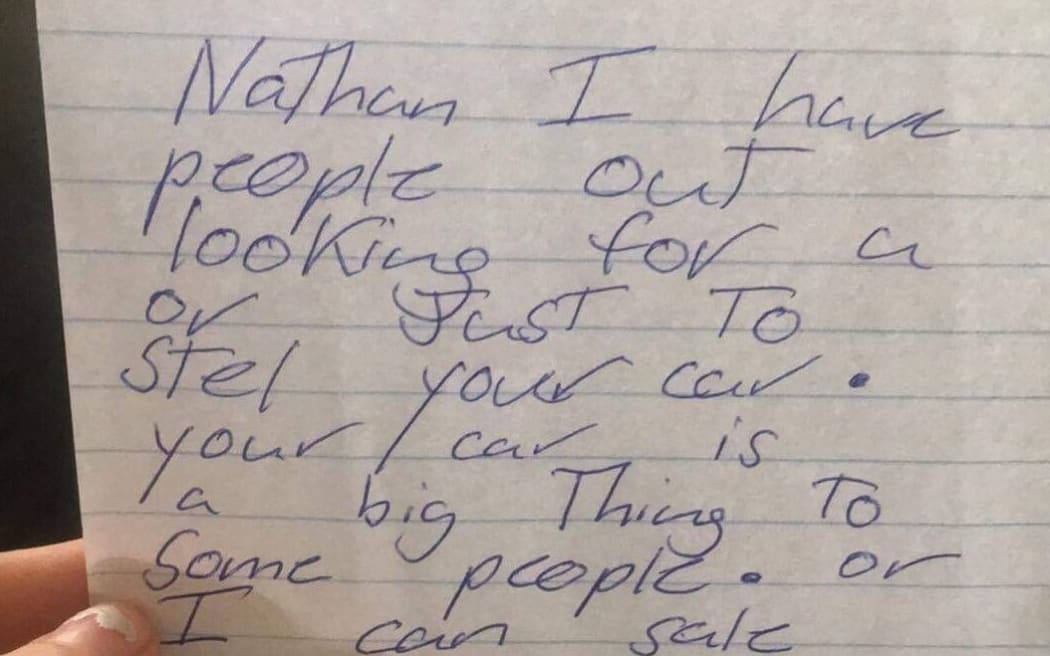 Nathan I have
people out
looking for a
or Just To
Stel your car.
your car is
a big Thing To
Some people. or
I can sale